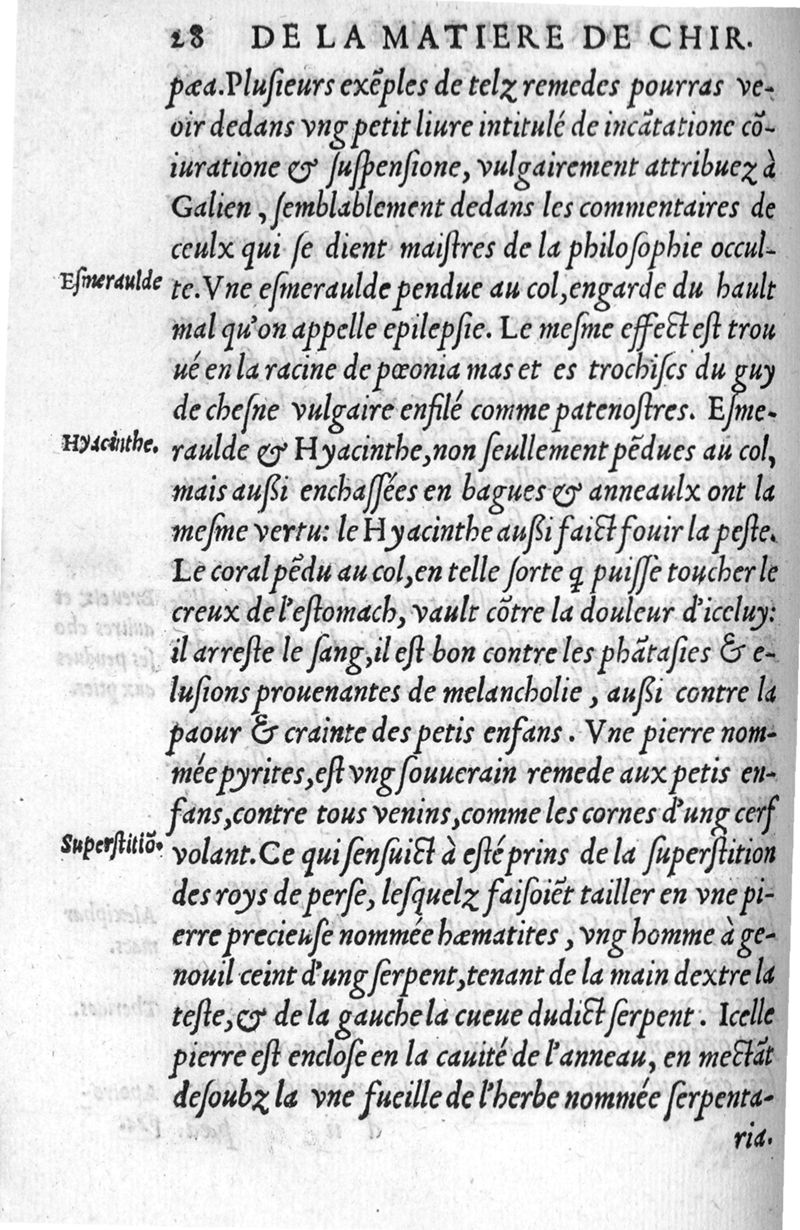 28 DE LA MATIERE DE CHIR.
pæa.Pluſieurs exẽples de telz remedes pourras ve-
oir dedans vng petit liure intitulé de incãtatione cõ-
iuratione & ſuſpenſione, vulgairement attribuez à
Galien, ſemblablement dedans les commentaires de
ceulx qui ſe dient maiſtres de la philoſophie occul-
Eſmeraulde
te.Vne eſmeraulde pendue au col,engarde du hault
mal qu'on appelle epilepſie. Le meſme effect eſt trou
ué en la racine de pœonia mas et es trochiſcs du guy
de cheſne vulgaire enfilé comme patenoſtres. Eſme-
Hyacinthe.
raulde & Hyacinthe,non ſeullement pẽdues au col,
mais außi enchaſſées en bagues & anneaulx ont la
meſme vertu: le Hyacinthe außi faict fouir la peſte.
Le coral pẽdu au col,en telle ſorte q puiſſe toucher le
creux de l'eſtomach, vault cõtre la douleur d'iceluy:
il arreſte le ſang,il eſt bon contre les phãtaſies & e-
luſions prouenantes de melancholie, außi contre la
paour & crainte des petis enfans. Vne pierre nom-
mée pyrites,eſt vng ſouuerain remede aux petis en-
fans,contre tous venins,comme les cornes d'ung cerf
Superſtitiõ.
volant.Ce qui ſenſuict à eſté prins de la ſuperſtition
des roys de perſe, leſquelz faiſoiẽt tailler en vne pi-
erre precieuſe nommée hæmatites, vng homme à ge-
nouil ceint d'ung ſerpent,tenant de la main dextre la
teſte,& de la gauche la cueue dudict ſerpent. Icelle
pierre eſt encloſe en la cauité de l'anneau, en mectãt
deſoubz la vne fueille de l'herbe nommée ſerpenta-
ria.